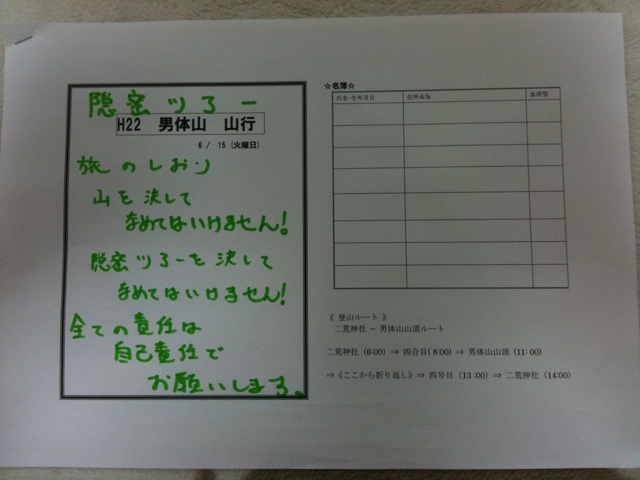 隠密ツろー
H22 男体山 山行
6 / 15 (火曜日)
旅のしおり
山を決して
なめてはいけません!
隠密ツろーを決して
なめてはいけません!
全ての責任は
自己責任で
お願いします。
☆名簿☆
氏名・生年月日 住所・℡ 血液型
《 登山ルート 》
二荒神社 ~ 男体山山頂ルート
二荒神社 (6:00) ⇒ 四合目(8:00) ⇒ 男体山山頂 (11:00)
⇒《ここから折り返し》⇒ 四号目 (13:00) ⇒ 二荒神社 (14:00)